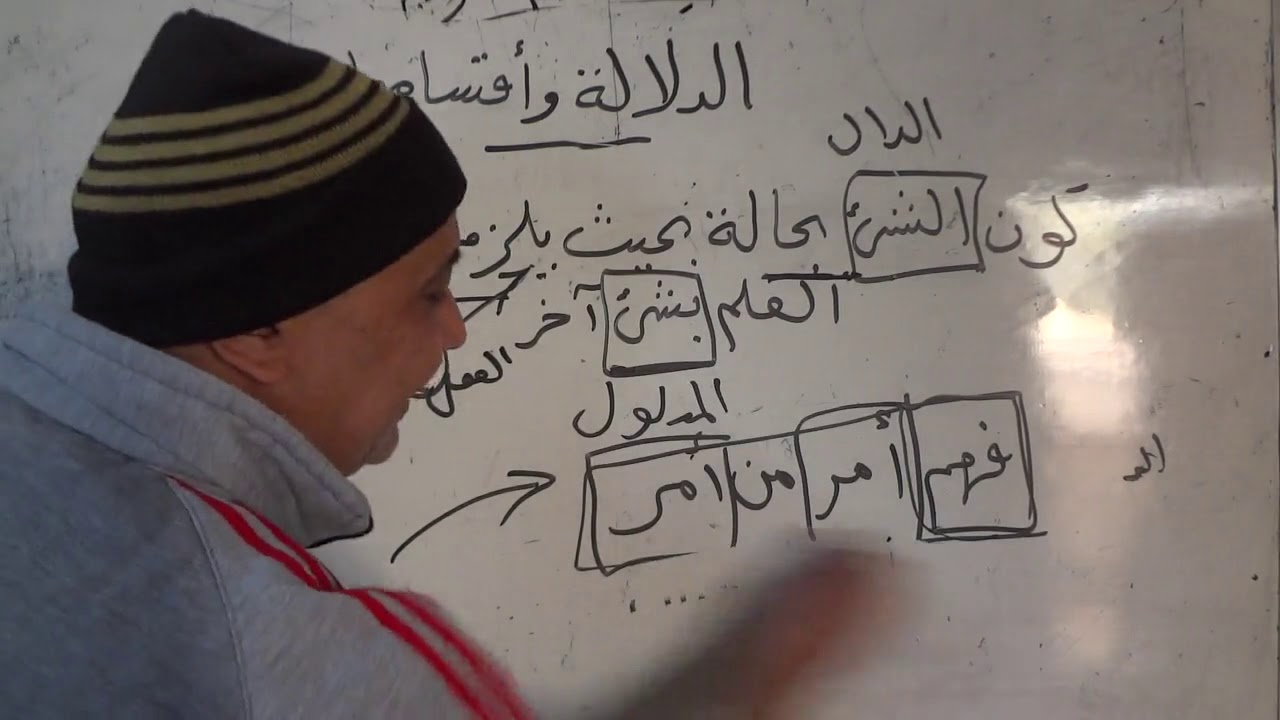 الدلالة وأقسامها
الدال
كون الشئ بحالة بحيث يلزم
العلم بشئ آخر
العقل
المدلول
فهم أمر من أمر
الد